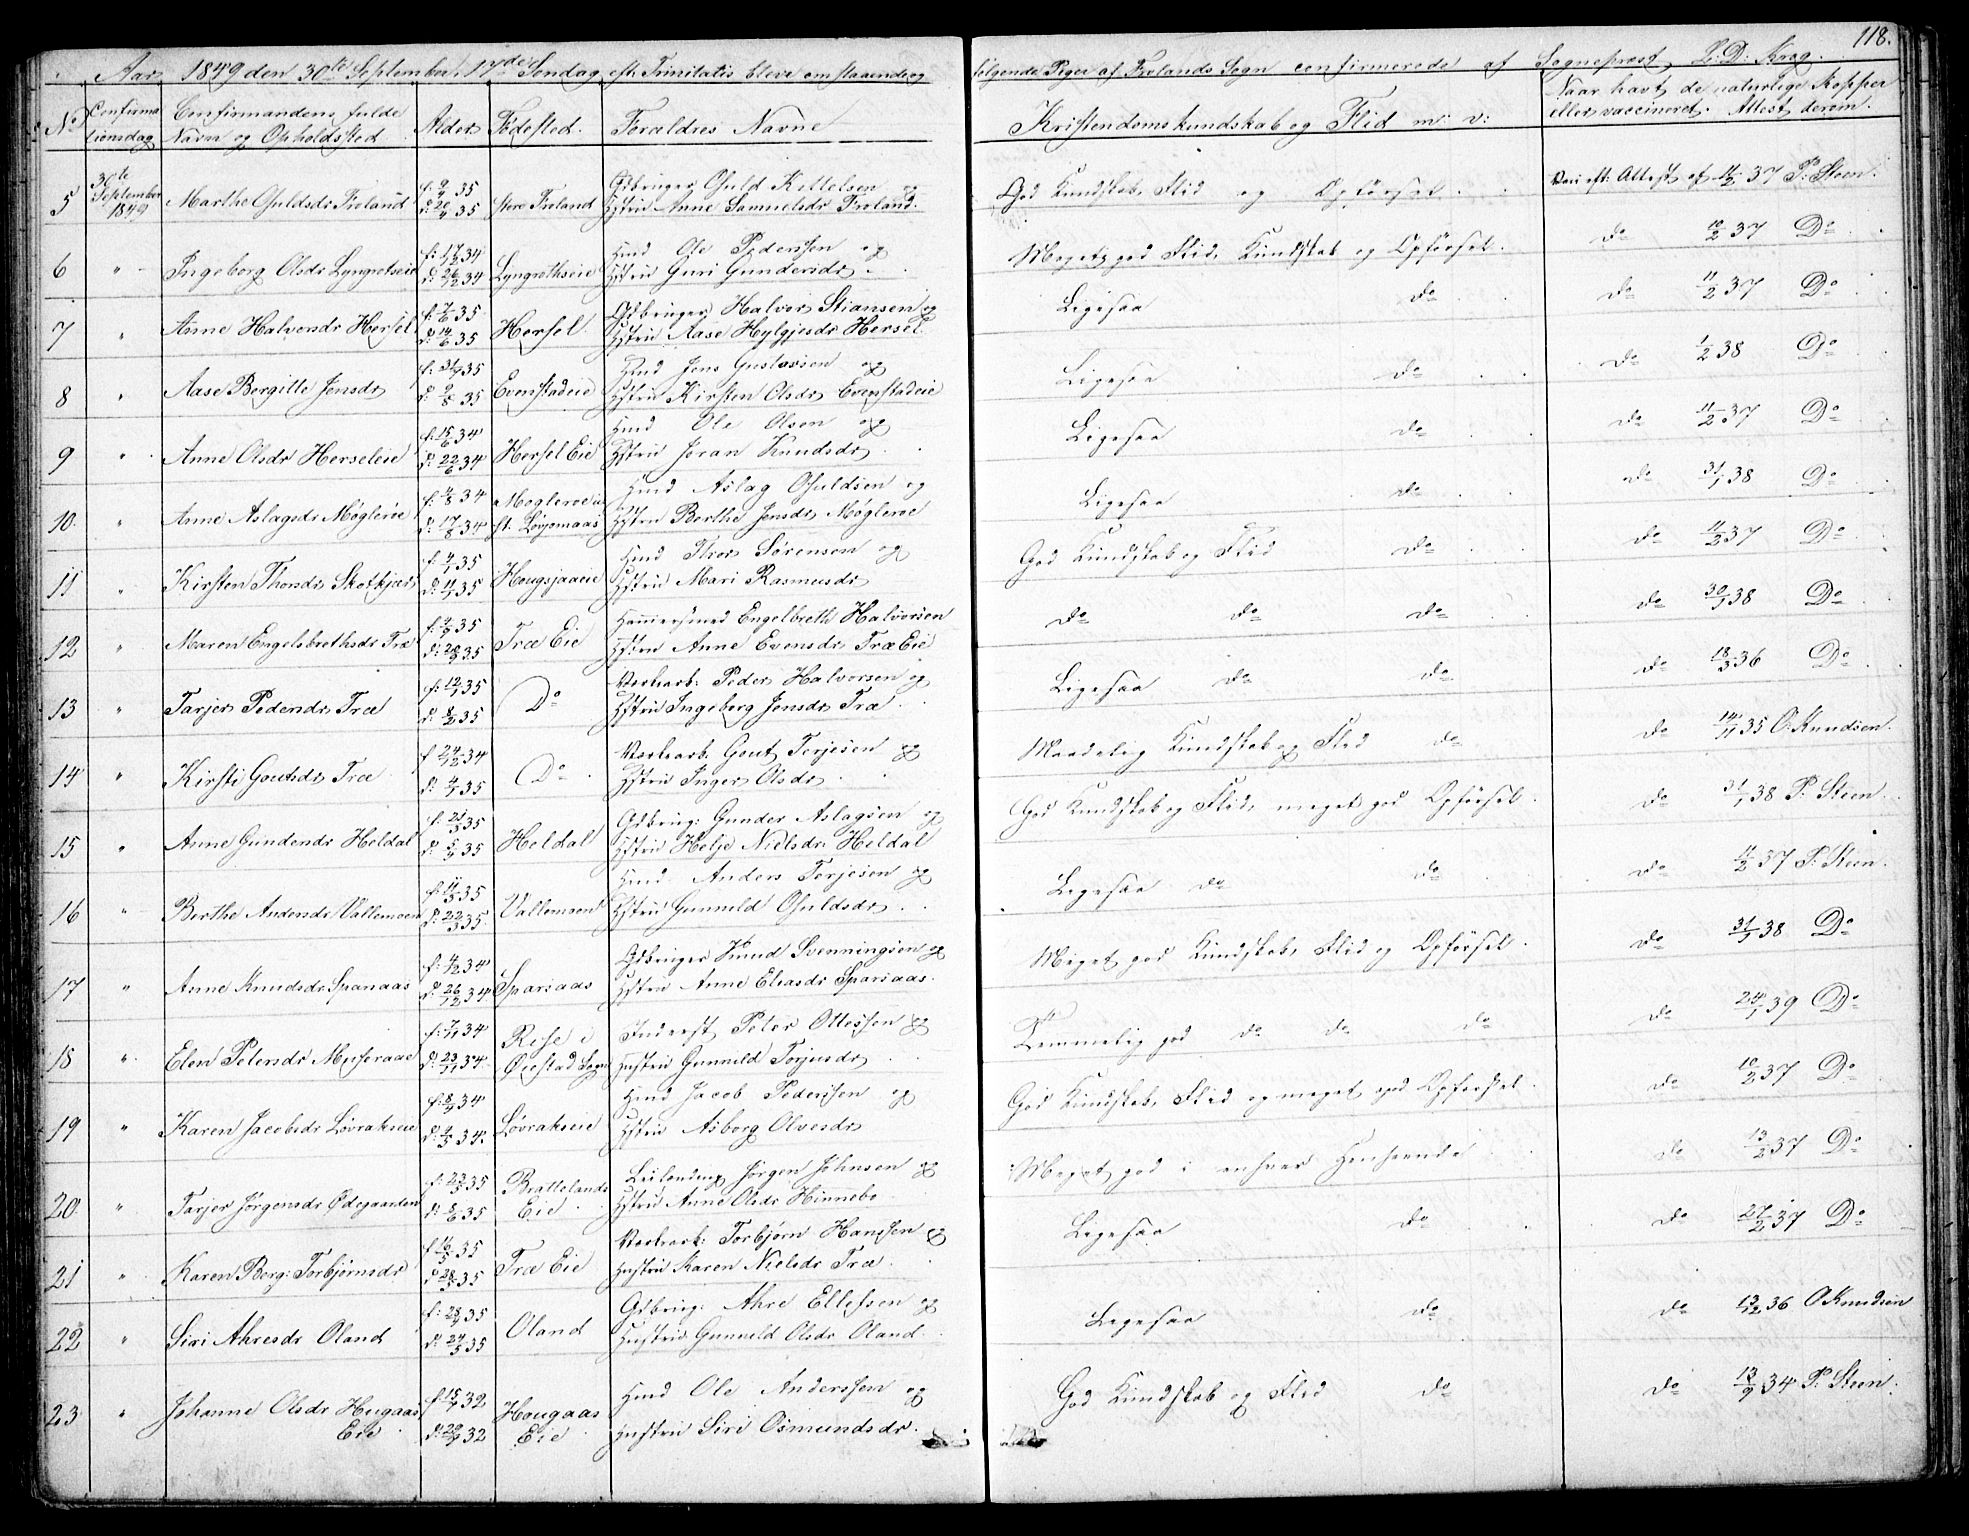 118.
Aar 1849 den 30te September, 17de Søndag eft. Trinitatis bleve omstaaende og følgende Piger af Frolands Sogn confirmerede af Sogneprest L: D: Krog.
No Confirmationsdag Confirmandens fulde Navn og Opholdssted. Alder Fødested. Forældres Navne Kristendomskundskab og Flid m: v: Naar havt de naturlige Kopper eller vaccineret. Attest derom.
5 30te September 1849 Marthe Osuldsdr Froland f: 9/4 35 d: 20/4 35 Store Froland Gdbruger Osuld Kittelsen og Hstru Anne Samuelsdr Froland. God Kundskab, Flid og Opførsel. Attest af 11/2 37 P. Steen.
6 " Ingeborg Olsdr Lyngrotseie f: 17/12 34 d: 26/12 34 Lyngrothseie Hmd Ole Pederssen og Hstru Guri Gundersdr. Meget god Flid, Kundskab og Opførsel. do 10/2 37 Do
7 " Anne Halvorsdr Hersel f: 7/6 35 d: 14/6 35 Hersel Gdbruger Halvor Stiansen og Hstru Aase Hylgjesdr Hersel Ligesaa do do 11/2 37 Do
8 " Aase Bergitte Jensdr f: 31/7 35 d: 9/8 35 Evenstadeie Hmd Jens Gustavsen og Hstru Kirsten Olsdr Evenstadeie Ligesaa do do 1/2 38 Do
9 " Anne Olsdr Herseleie f: 15/6 34 d: 22/6 34 Hersel Eie Hmd Ole Olsen og Hstru Jøran Knudsdr Ligesaa do do 11/2 37 Do
10. " Anne Aslagsdr Møglerøe f: 4/8 34 d: 17/8 34 Møglerøe Hmd Aslag Osuldsen og Hstru Berthe Jensdr Møglerøe Ligesaa do do 31/1 38 Do
11 " Kirsten Thorsdr Skotkjær f: 4/1 35 d: 11/1 35 Hougsjaaeie Hmd Thor Sørensen og Hstru Mari Rasmusdr God Kundskab og Flid do do 11/2 37 Do
12 " Maren Engelsbrethsdr Træ f: 9/9 35 d: 20/9 35 Træ Eie Hammersmed Engelbreth Halvorsen Hstru Anne Evensdr Træ Eie do do do do 30/1 38 Do
13 " Tarjer Pedersdr Træ f: 12/1 35 d: 8/2 35 Do Verkarb. Peder Halvorsen og Hstru Ingeborg Jensdr Træ Ligesaa do do do 18/3 36 Do
14 " Kirsti Goutsdr Træ f 24/12 34 d: 4/1 35 Do Verkarb. Gout Terjesen og Hstru Inger Olsdr Maadelig Kundskab og Flid do do 14/11 35 O. Knudsen.
15 " Anne Gundersdr Heldal f: 21/3 35 d: 5/4 35 Heldal Gdbrug: Gunder Aslagsen og Hstru Helje Nielsdr Heldal God Kundskab og Flid, meget god Opførsel. do 31/1 38 P. Steen
16 " Berthe Andersdr Vallemoen f: 11/3 35 d: 22/3 35 Vallemoen Hmd Anders Terjesen og Hstru Gunnild Osuldsdr Ligesaa do do do 11/2 37 P. Steen.
17 " Anne Knudsdr Sparsaas f: 4/12 34 d: 26/12 34 Sparsaas Gdbruger Knud Svenningsen og Hstru Anne Eliasdr Sparsaas. Meget god Kundskab, Flid og Opførsel. do 31/1 38 Do
18 " Elen Petersdr Museraae f: 7/11 34 d: 23/11 34 Rise i Øiestad Sogn Inderst Peter Ottessen og Hustru Gunnild Torjusdr Temmelig god do do do do 24/1 39 Do
19 " Karen Jacobsdr Løvrakseie f: 8/4 34 d: 4/5 34. Løvrakseie Hmd Jacob Pederssen og Hstru Asborg Olvesdr God Kundskab, Flid og meget god Opførsel. do 10/2 37 Do
20. " Tarjer Jørgensdr Ødegaarden f: 23/5 35 d: 8/6 35 Brattelands Eie Leilending Jørgen Johnsen og Hstru Anne Olsdr Hinnebo Meget god i enhver Henseende do 13/2 37 Do
21 " Karen Berg: Torbjørnsdr f 16/5 35 d 28/5 35 Træ Eie Verkarb: Torbjørn Hanssen og Hustru Karen Nielsdr Træ Ligesaa do do 27/2 37 Do
22 " Siri Ahresdr Oland f: 28/4 35 d: 24/5 35 Oland Gdbrug: Ahre Ellefsen og Hustru Gunnild Olsdr Oland Ligesaa do do 13/12 36 O Knudsen
23 " Johanne Olsdr Hougaas Eie f 15/9 32 d: 20/9 32 Hougaas Eie Hmd Ole Anderssen og Hustru Siri Osmundsdr. God Kundskab og Flid do do 12/9 34 P. Steen.